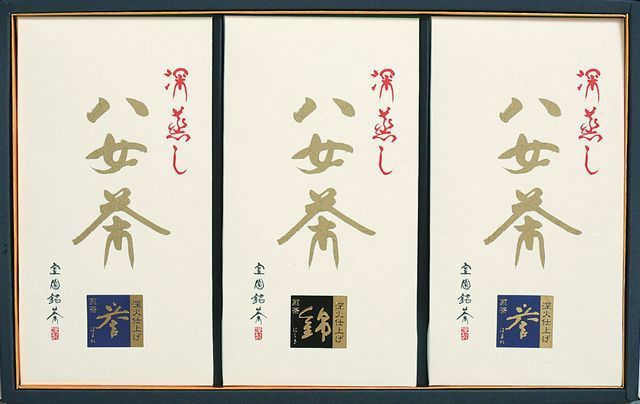 深蒸し
八女茶
深火仕上げ
煎茶
誉
ほまれ
深蒸し
八女茶
深火仕上げ
煎茶
錦
にしき
深蒸し
八女茶
深火仕上げ
煎茶
誉
ほまれ